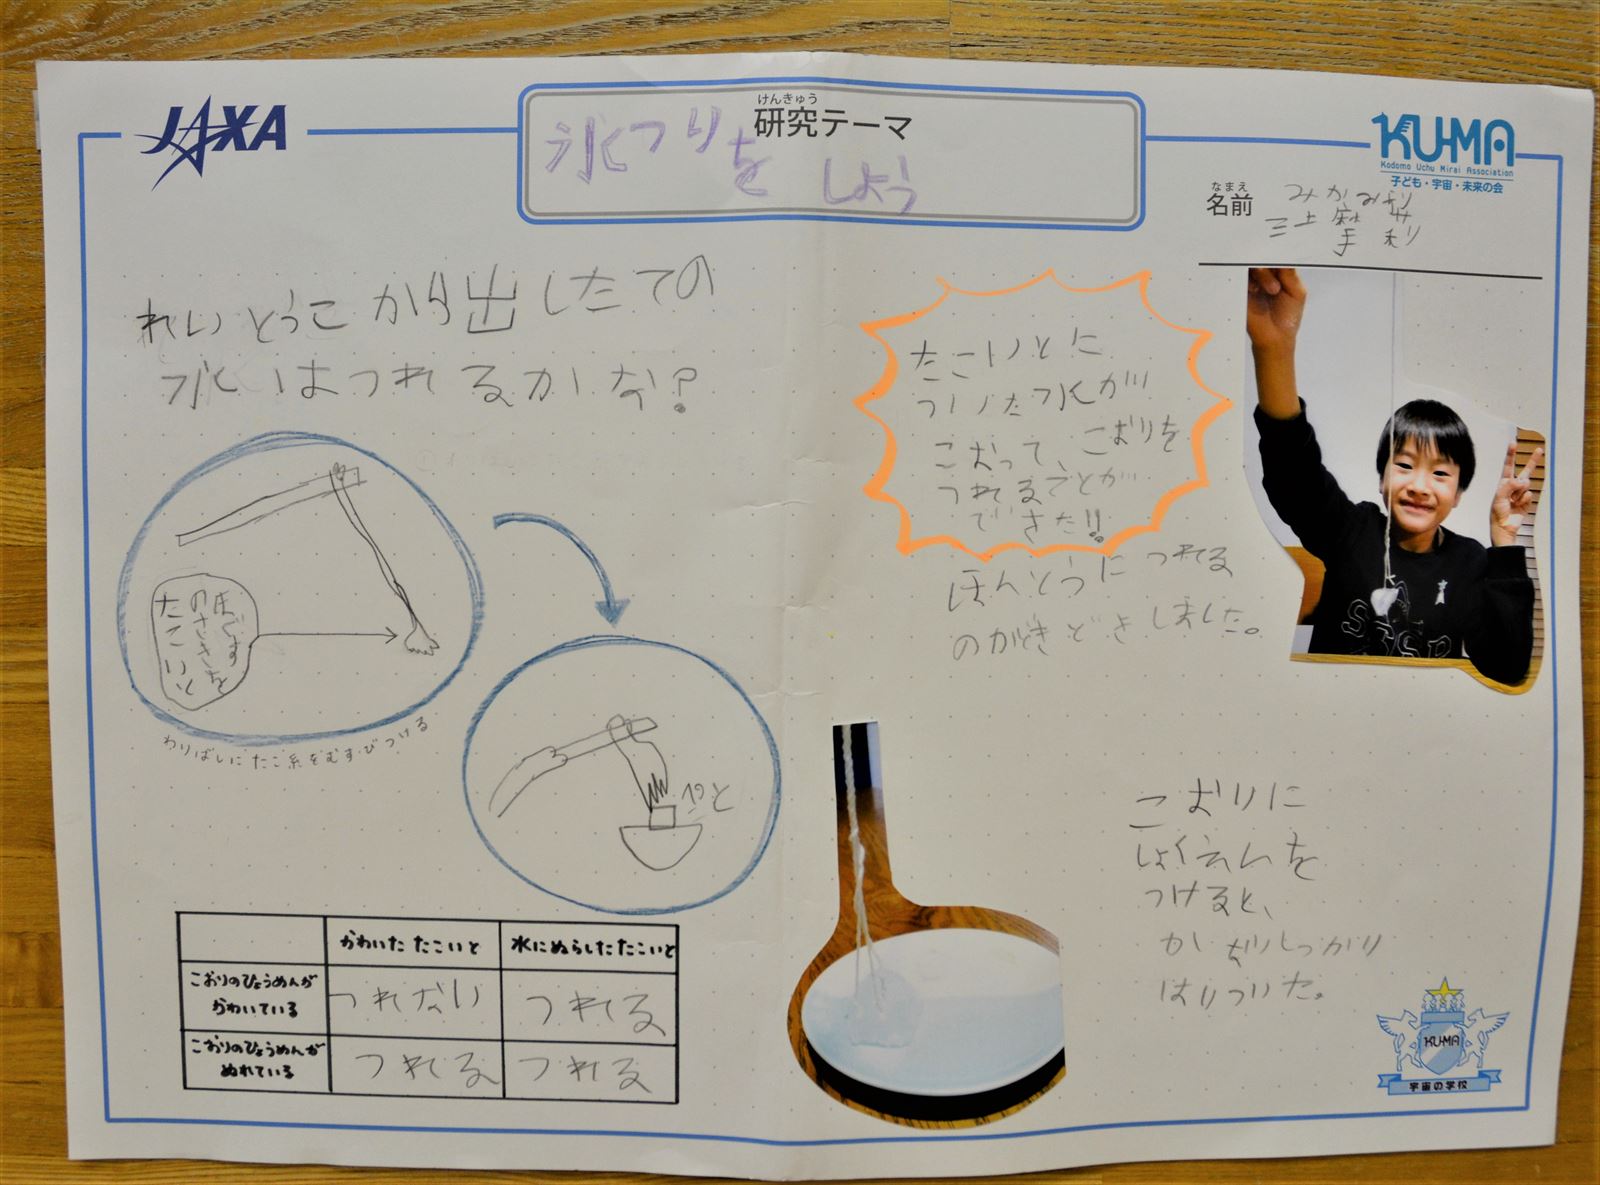 JAXA
けんきゅう
研究テーマ
氷つりを
しよう
KU-MA
Kodomo Uchu Mirai Association
子ども・宇宙・未来の会
なまえ
名前
みかみ
三上
れいとうこから出したての
氷はつれるかな?
たこいと
のさきを
わりばしにたこ糸をむすびつける
たこいとに
ついた水が
こおって、こおりを
つれることが
できた!!
ほんとうにつれる
のがどきどきしました。
こおりに
しょくえんを
つけると、
かなりしっかり
はりついた。
かわいた たこいと
水にぬらしたたこいと
こおりのひょうめんが
かわいている
つれない
つれる
こおりのひょうめんが
ぬれている
つれる
つれる
KU-MA
宇宙の学校